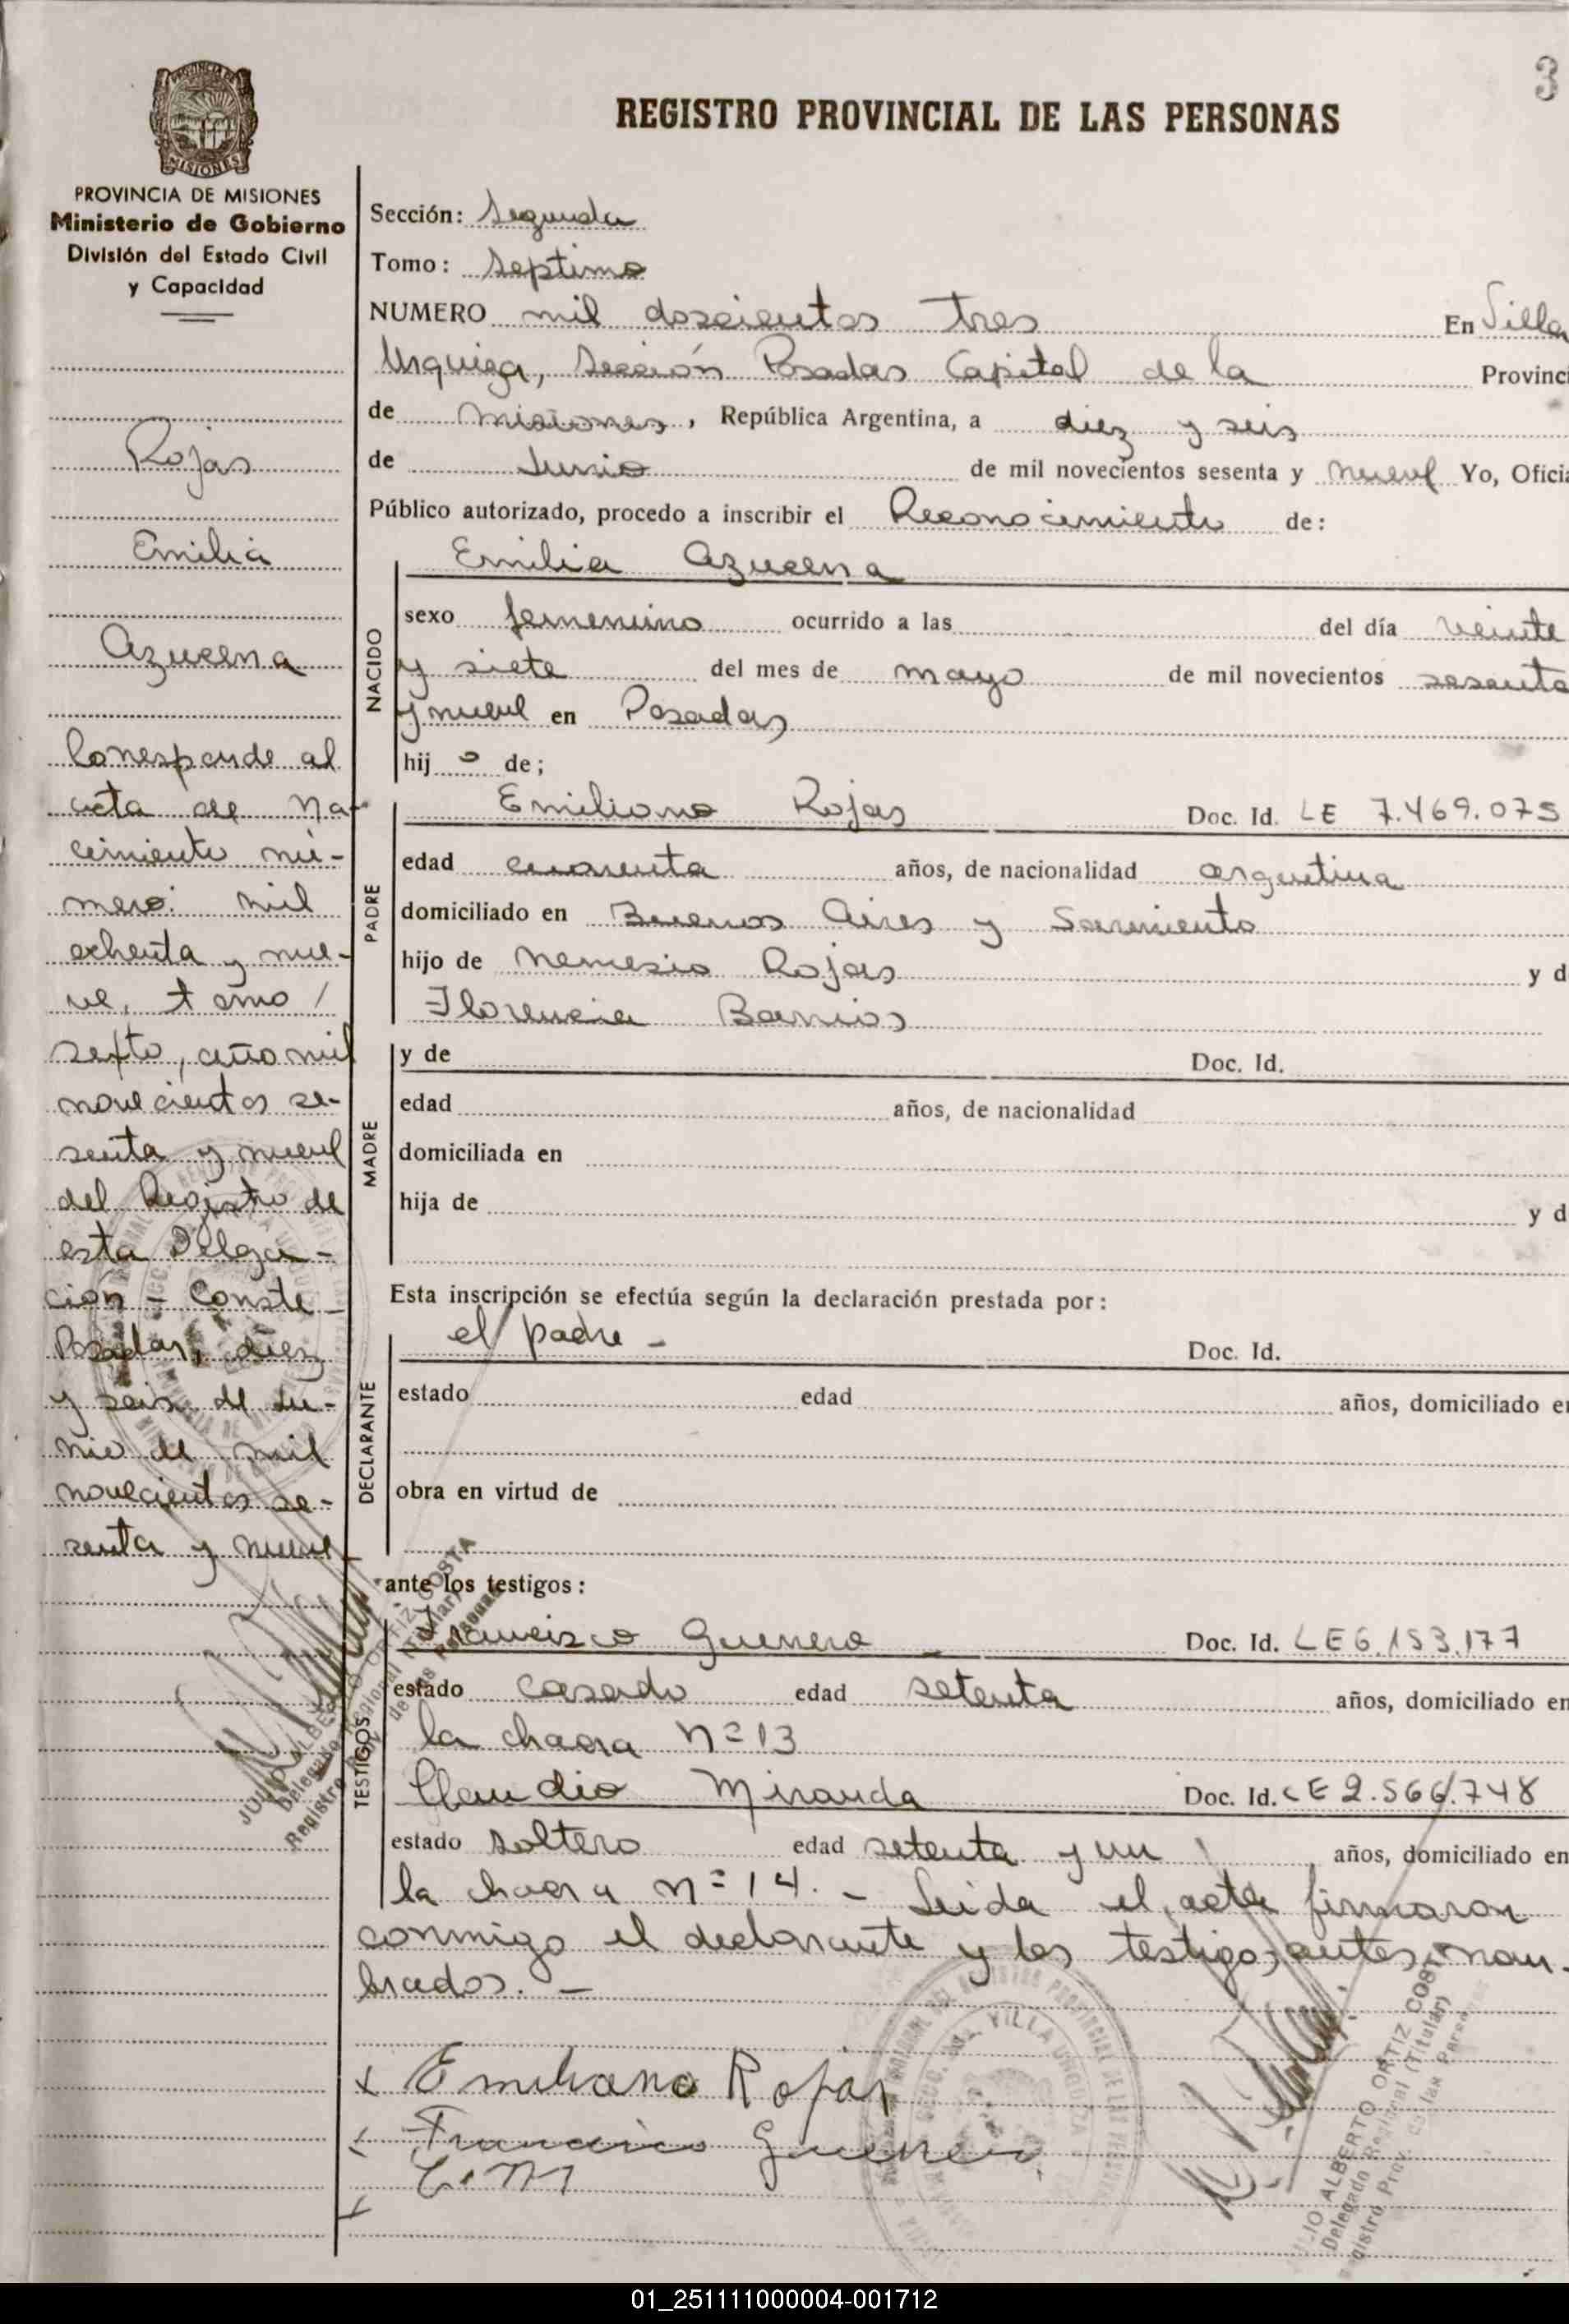 3
REGISTRO PROVINCIAL DE LAS PERSONAS
MISIONES
PROVINCIA DE MISIONES
Ministerio de Gobierno
División del Estado Civil
y Capacidad
Rojas
Emilia
Azucena
Corresponde al
acta de na-
cimiento nú-
mero: mil
ochenta y nue-
ve, tomo /
sexto, año mil
novecientos se-
senta y nueve
del Registro de
esta Delega-
ción - Conste -
Posadas, diez
y seis de Ju-
nio de mil
novecientos se-
senta y nueve
Sección: Segunda
Tomo: Septimo
NUMERO mil doscientos tres En Villa
Urquiza, Sección Posadas Capital de la Provinci
de Misiones, República Argentina, a diez y seis
de Junio de mil novecientos sesenta y nueve Yo, Oficia
Público autorizado, procedo a inscribir el Reconocimiento de:
NACIDO
Emilia Azucena
sexo femenino ocurrido a las del día veinte
y siete del mes de mayo de mil novecientos sesenta
y nueve en Posadas
hij o de;
PADRE
Emiliano Rojas Doc. Id. LE 7.469.075
edad cuarenta años, de nacionalidad argentina
domiciliado en Buenos Aires y Sarmiento
hijo de Nemesio Rojas y d
Florencia Barrios
MADRE
y de Doc. Id.
edad años, de nacionalidad
domiciliada en
hija de y d
Esta inscripción se efectúa según la declaración prestada por:
DECLARANTE
el padre - Doc. Id.
estado edad años, domiciliado en
obra en virtud de
ante los testigos:
TESTIGOS
Francisco Guerrero - Doc. Id. LE 6.153.177
estado casado edad setenta años, domiciliado en
la chacra nº 13
Claudio Miranda Doc. Id. LE 2.566.748
estado soltero edad setenta y un años, domiciliado en
la chacra nº 14. - Leida el acta firmaron
conmigo el declarante y los testigos antes nom-
brados. -
x Emiliano Rojas
x Francisco Guerrero
C. M
JULIO ALBERTO ORTIZ COSTA
Delegado Regional (Titular)
Registro Prov. de las Personas
VILLA URQUIZA
JULIO ALBERTO ORTIZ COSTA
Delegado Regional (Titular)
Registro Prov. de las Personas
01_251111000004-001712